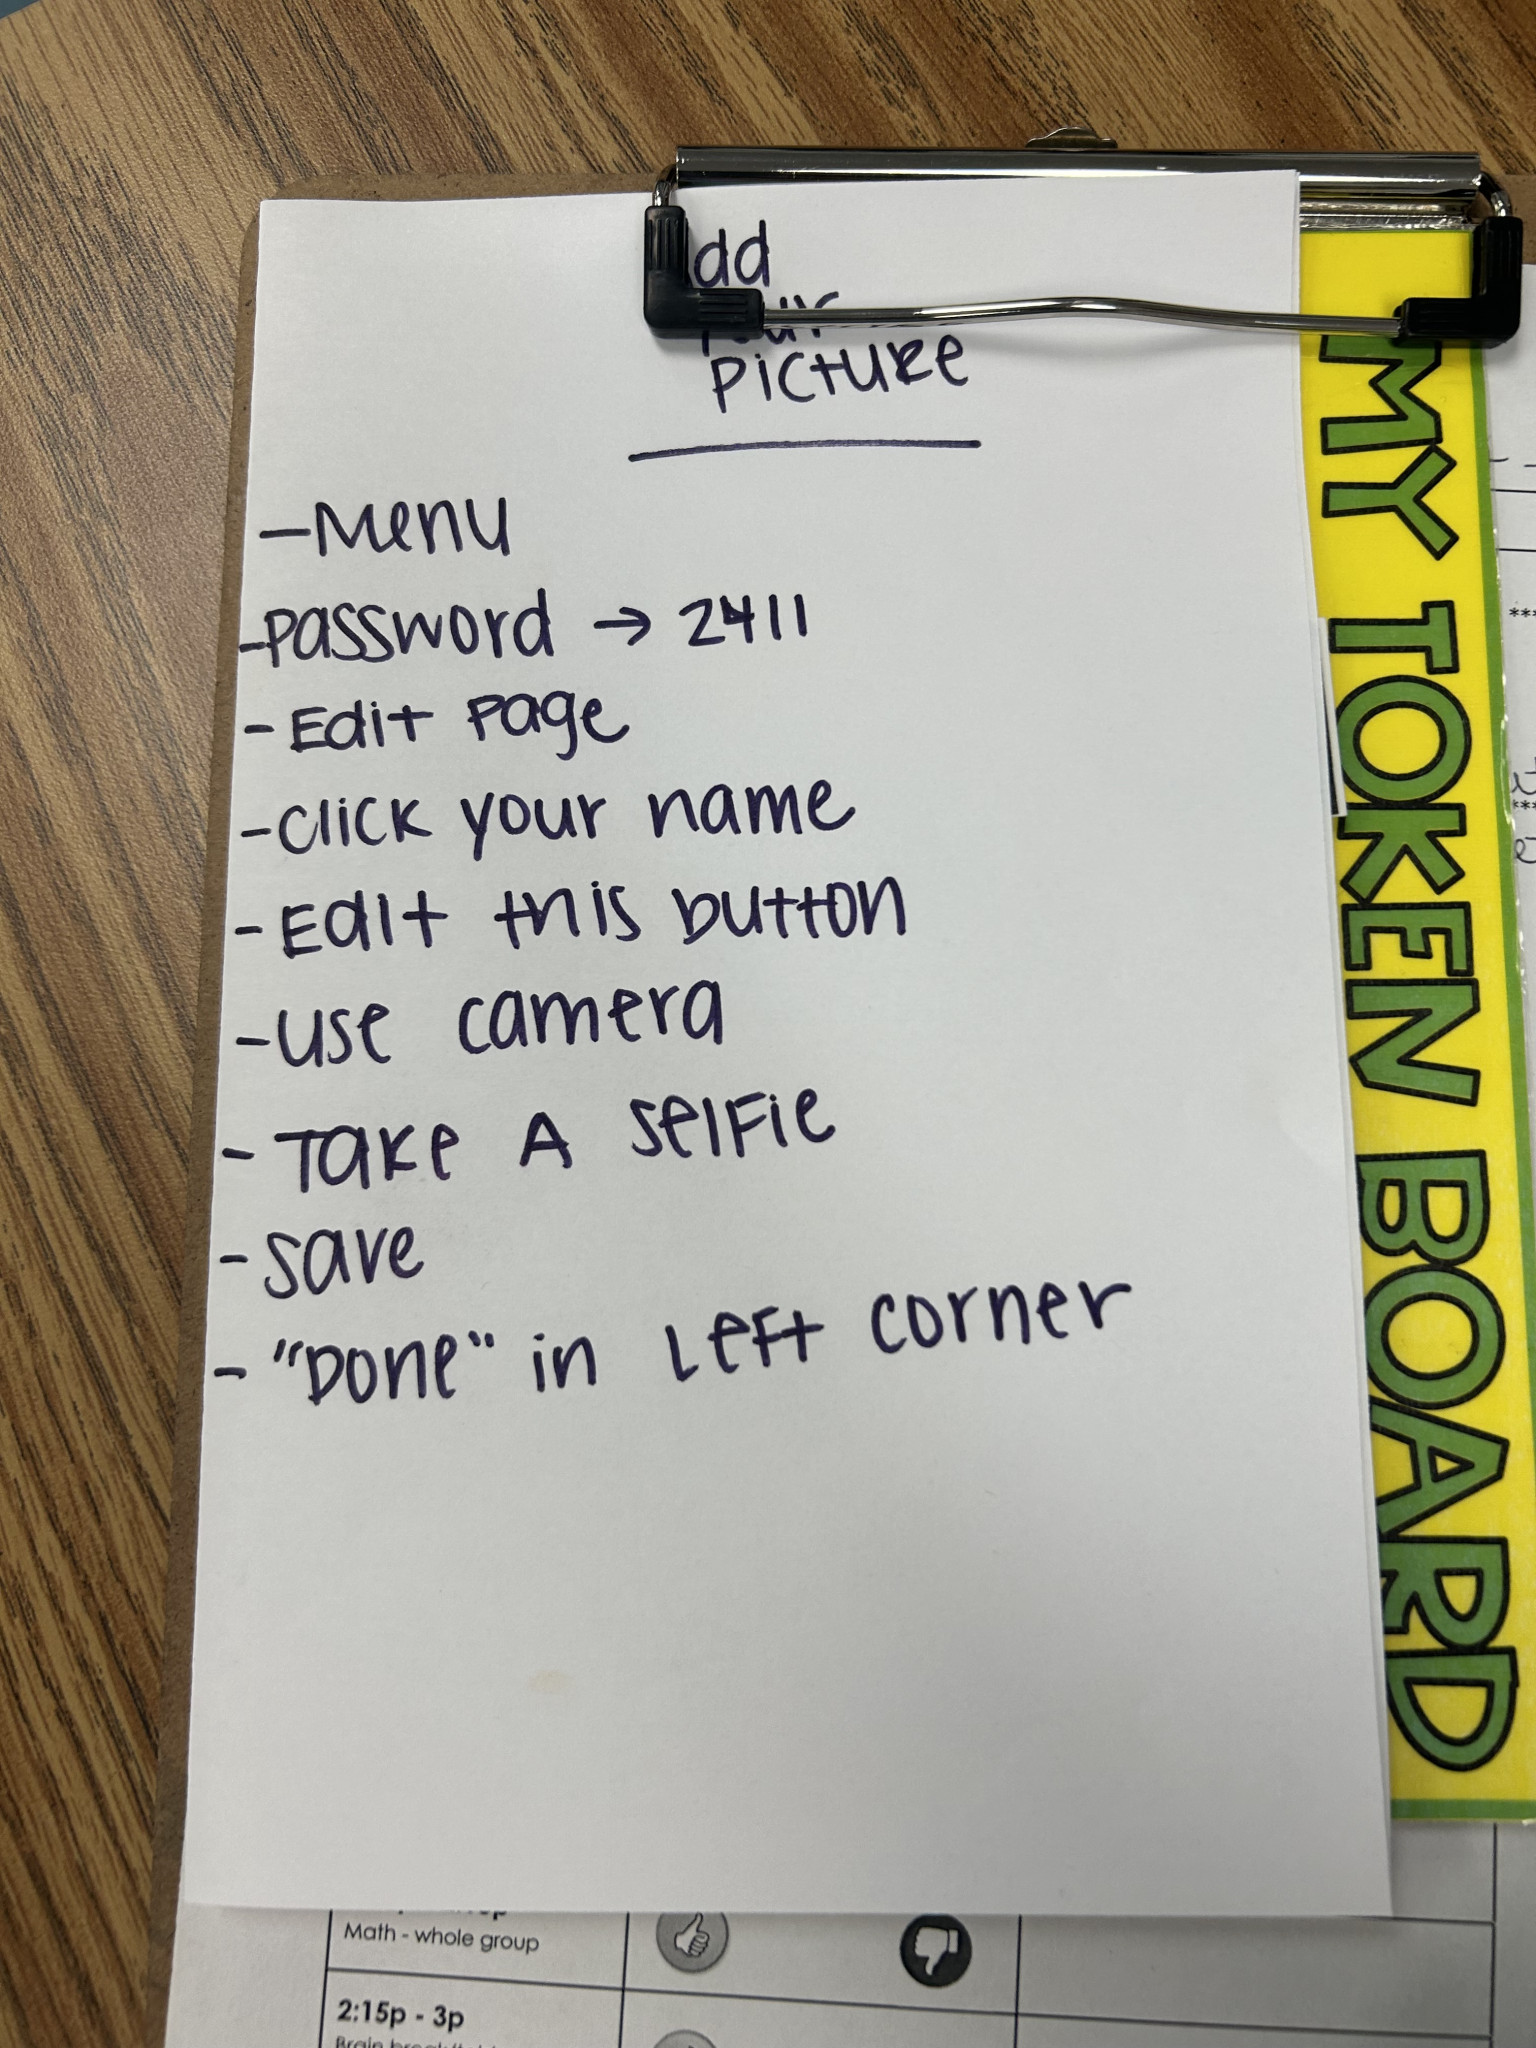 dd
your
picture
- Menu
- password → 2411
- Edit page
- click your name
- Edit this button
- use camera
- Take A selfie
- save
- "Done" in Left corner
MY TOKEN BOARD
Math - whole group
2:15p - 3p